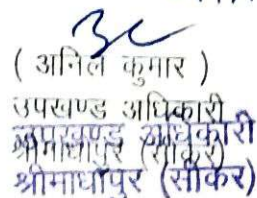 ( अनिल कुमार )
उपखण्ड अधिकारी
उपखण्ड अधिकारी
श्रीमाधोपुर (सीकर)
श्रीमाधोपुर (सीकर)